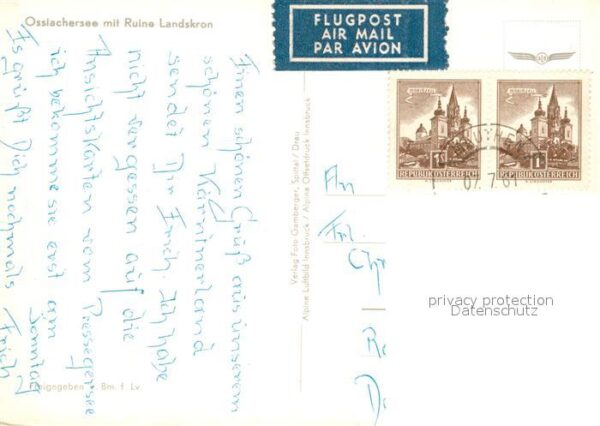 Ossiachersee mit Ruine Landskron
FLUGPOST
AIR MAIL
PAR AVION
REPUBLIK ÖSTERREICH
REPUBLIK ÖSTERREICH
07.7.61
Einen schönen Gruß aus unserem
schönen Kärntnerland
sendet Dir Erich. Ich habe
nicht vergessen auf die
Ansichtskarten vom Presseggersee
ich bekomme sie erst am
Sonntag
Es grüßt Dich nochmals Erich
Verlag Foto Gamberger, Spittal / Drau
Alpine Luftbild Innsbruck / Alpine Offsetdruck Innsbruck
An
Frl.
Freigegeben v. Bm. f. Lv.
privacy protection
Datenschutz